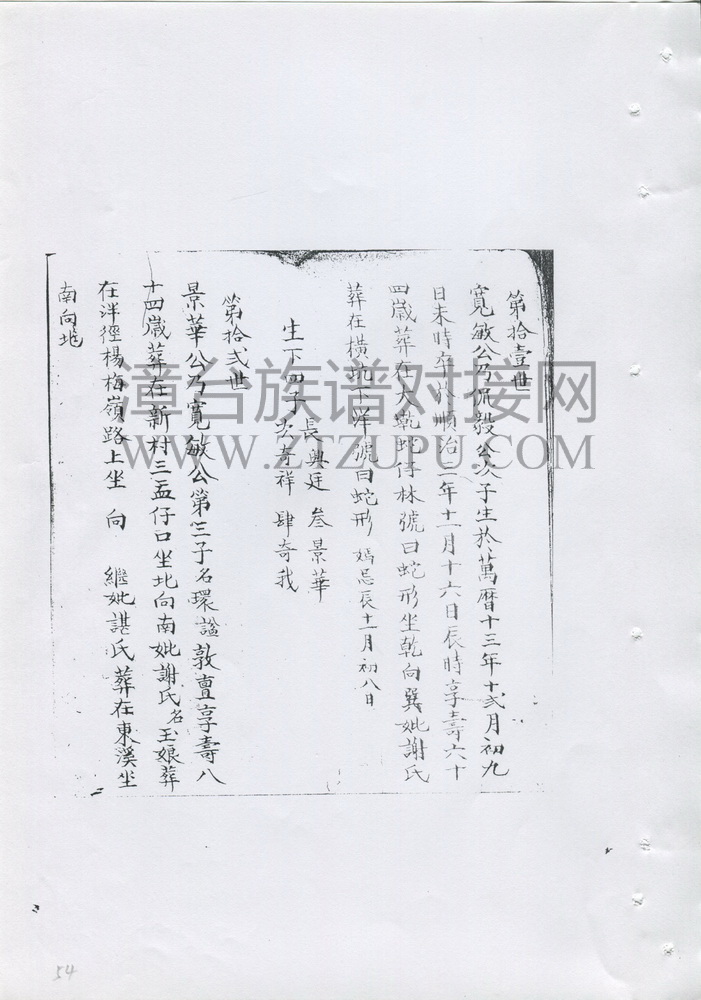 第拾壹世
寬敏公乃侃毅公次子生於萬曆十三年十弍月初九
日未時卒於順治二年十一月十六日辰時享壽六十
四歲葬在大乾蛇仔林號曰蛇形坐乾向巽妣謝氏
葬在橫坑下洋號曰蛇形 媽忌辰十一月初八日
生下四子 長興廷 叁景華
次奇祥 肆奇我
第拾弍世
景華公乃寬敏公第三子名環謚敦亶享壽八
十四歲葬在新村三盂仔口坐北向南妣謝氏名玉娘葬
在洋徑楊梅嶺路上坐 向 繼妣諶氏葬在東溪坐
南向北
漳台族谱对接网
WWW.ZTZUPU.COM
54